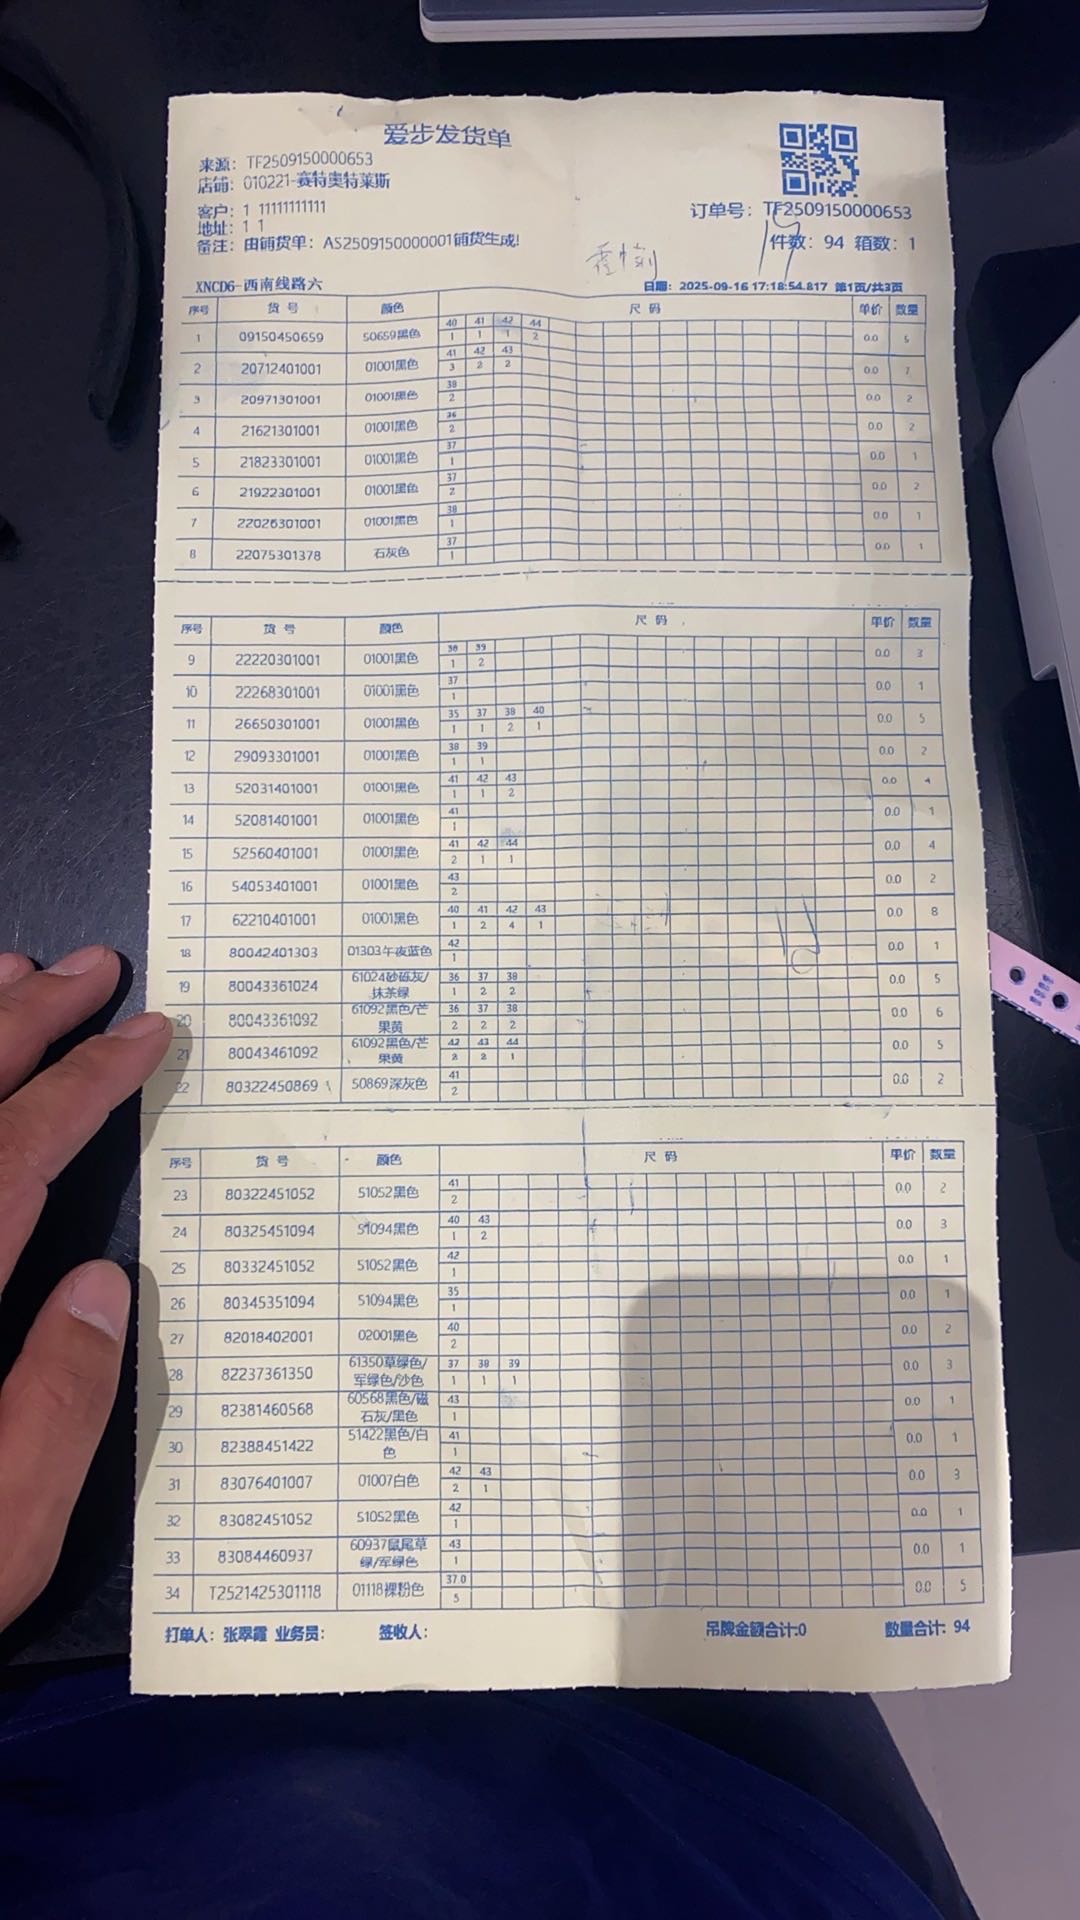 爱步发货单
来源: TF2509150000653
店铺: 010221-赛特奥特莱斯
客户: 1 11111111111
地址: 1 1
订单号: TF2509150000653
备注: 由铺货单: AS2509150000001铺货生成!
件数: 94 箱数: 1
XNCD6-西南线路六
日期: 2025-09-16 17:18:54.817 第1页/共3页
序号 货 号 颜色 尺 码 单价 数量
40 41 42 44
1 09150450659 50659黑色 1 1 1 2 0.0 5
41 42 43
2 20712401001 01001黑色 3 2 2 0.0 7
38
3 20971301001 01001黑色 2 0.0 2
36
4 21621301001 01001黑色 2 0.0 2
37
5 21823301001 01001黑色 1 0.0 1
37
6 21922301001 01001黑色 2 0.0 2
38
7 22026301001 01001黑色 1 0.0 1
37
8 22075301378 石灰色 1 0.0 1
序号 货 号 颜色 尺 码 单价 数量
38 39
9 22220301001 01001黑色 1 2 0.0 3
37
10 22268301001 01001黑色 1 0.0 1
35 37 38 40
11 26650301001 01001黑色 1 1 2 1 0.0 5
38 39
12 29093301001 01001黑色 1 1 0.0 2
41 42 43
13 52031401001 01001黑色 1 1 2 0.0 4
41
14 52081401001 01001黑色 1 0.0 1
41 42 44
15 52560401001 01001黑色 2 1 1 0.0 4
43
16 54053401001 01001黑色 2 0.0 2
40 41 42 43
17 62210401001 01001黑色 1 2 4 1 0.0 8
42
18 80042401303 01303午夜蓝色 1 0.0 1
36 37 38
19 80043361024 61024砂砾灰/抹茶绿 1 2 2 0.0 5
36 37 38
20 80043361092 61092黑色/芒果黄 2 2 2 0.0 6
42 43 44
21 80043461092 61092黑色/芒果黄 2 2 1 0.0 5
41
22 80322450869 50869深灰色 2 0.0 2
序号 货 号 颜色 尺 码 单价 数量
41
23 80322451052 51052黑色 2 0.0 2
40 43
24 80325451094 51094黑色 1 2 0.0 3
42
25 80332451052 51052黑色 1 0.0 1
35
26 80345351094 51094黑色 1 0.0 1
40
27 82018402001 02001黑色 2 0.0 2
37 38 39
28 82237361350 61350草绿色/军绿色/沙色 1 1 1 0.0 3
43
29 82381460568 60568黑色/磁石灰/黑色 1 0.0 1
41
30 82388451422 51422黑色/白色 1 0.0 1
42 43
31 83076401007 01007白色 2 1 0.0 3
42
32 83082451052 51052黑色 1 0.0 1
43
33 83084460937 60937鼠尾草绿/军绿色 1 0.0 1
37.0
34 T2521425301118 01118裸粉色 5 0.0 5
打单人: 张翠霞 业务员: 签收人: 吊牌金额合计:0 数量合计: 94